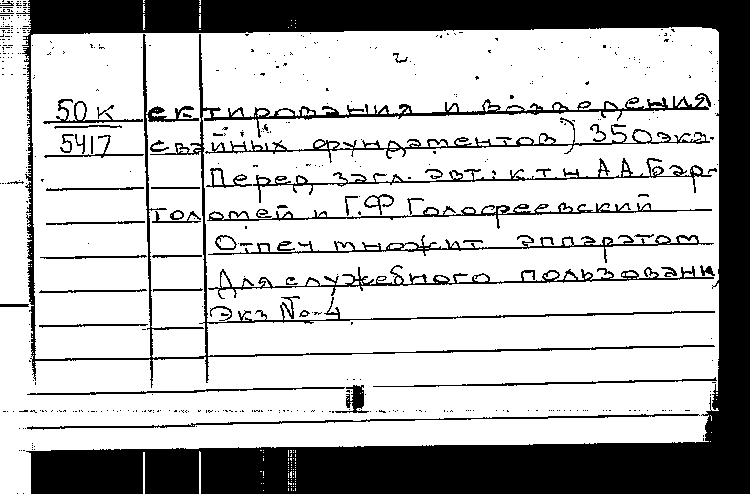 2
50К ектирования и возведения
5417 свайных фундаментов) 350экз.
Перед загл. авт.: к.т.н. А.А. Бар-
толомей и Г.Ф. Голофреевский
Отпеч множит аппаратом
Для служебного пользовани
Экз № 4